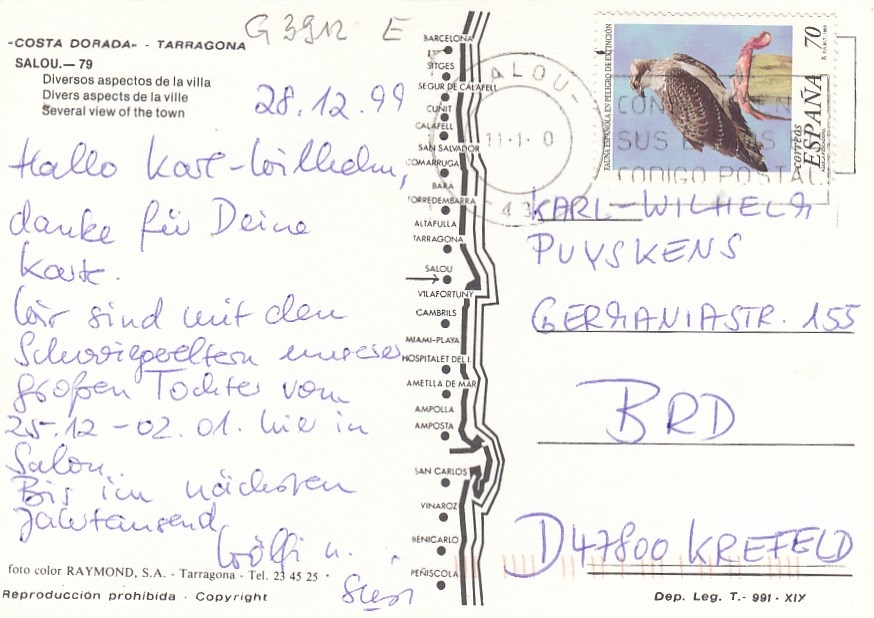 G 3912 E
"COSTA DORADA" - TARRAGONA
SALOU.— 79
Diversos aspectos de la villa
Divers aspects de la ville
Several view of the town
28.12.99
Hallo Karl-Wilhelm,
danke für Deine
Karte.
Wir sind mit den
Schwiegereltern unserer
großen Tochter vom
25.12 - 02.01. hier in
Salou.
Bis im nächsten
Jahrtausend
Wölfi u.
Susi
foto color RAYMOND, S.A. - Tarragona - Tel. 23 45 25
Reproducción prohibida - Copyright
BARCELONA
SITGES
SEGUR DE CALAFELL
CUNIT
CALAFELL
SAN SALVADOR
COMARRUGA
BARA
TORREDEMBARRA
ALTAFULLA
TARRAGONA
SALOU
VILAFORTUNY
CAMBRILS
MIAMI-PLAYA
HOSPITALET DEL I.
AMETLLA DE MAR
AMPOLLA
AMPOSTA
SAN CARLOS
VINAROZ
BENICARLO
PEÑISCOLA
SALOU -
11-1- 0
43
FAUNA ESPAÑOLA EN PELIGRO DE EXTINCIÓN
70
correos
ESPAÑA
SUS
CODIGO POSTAL
KARL-WILHELM
PUYSKENS
GERMANIASTR. 155
BRD
D 47800 KREFELD
Dep. Leg. T.- 991 - XIY